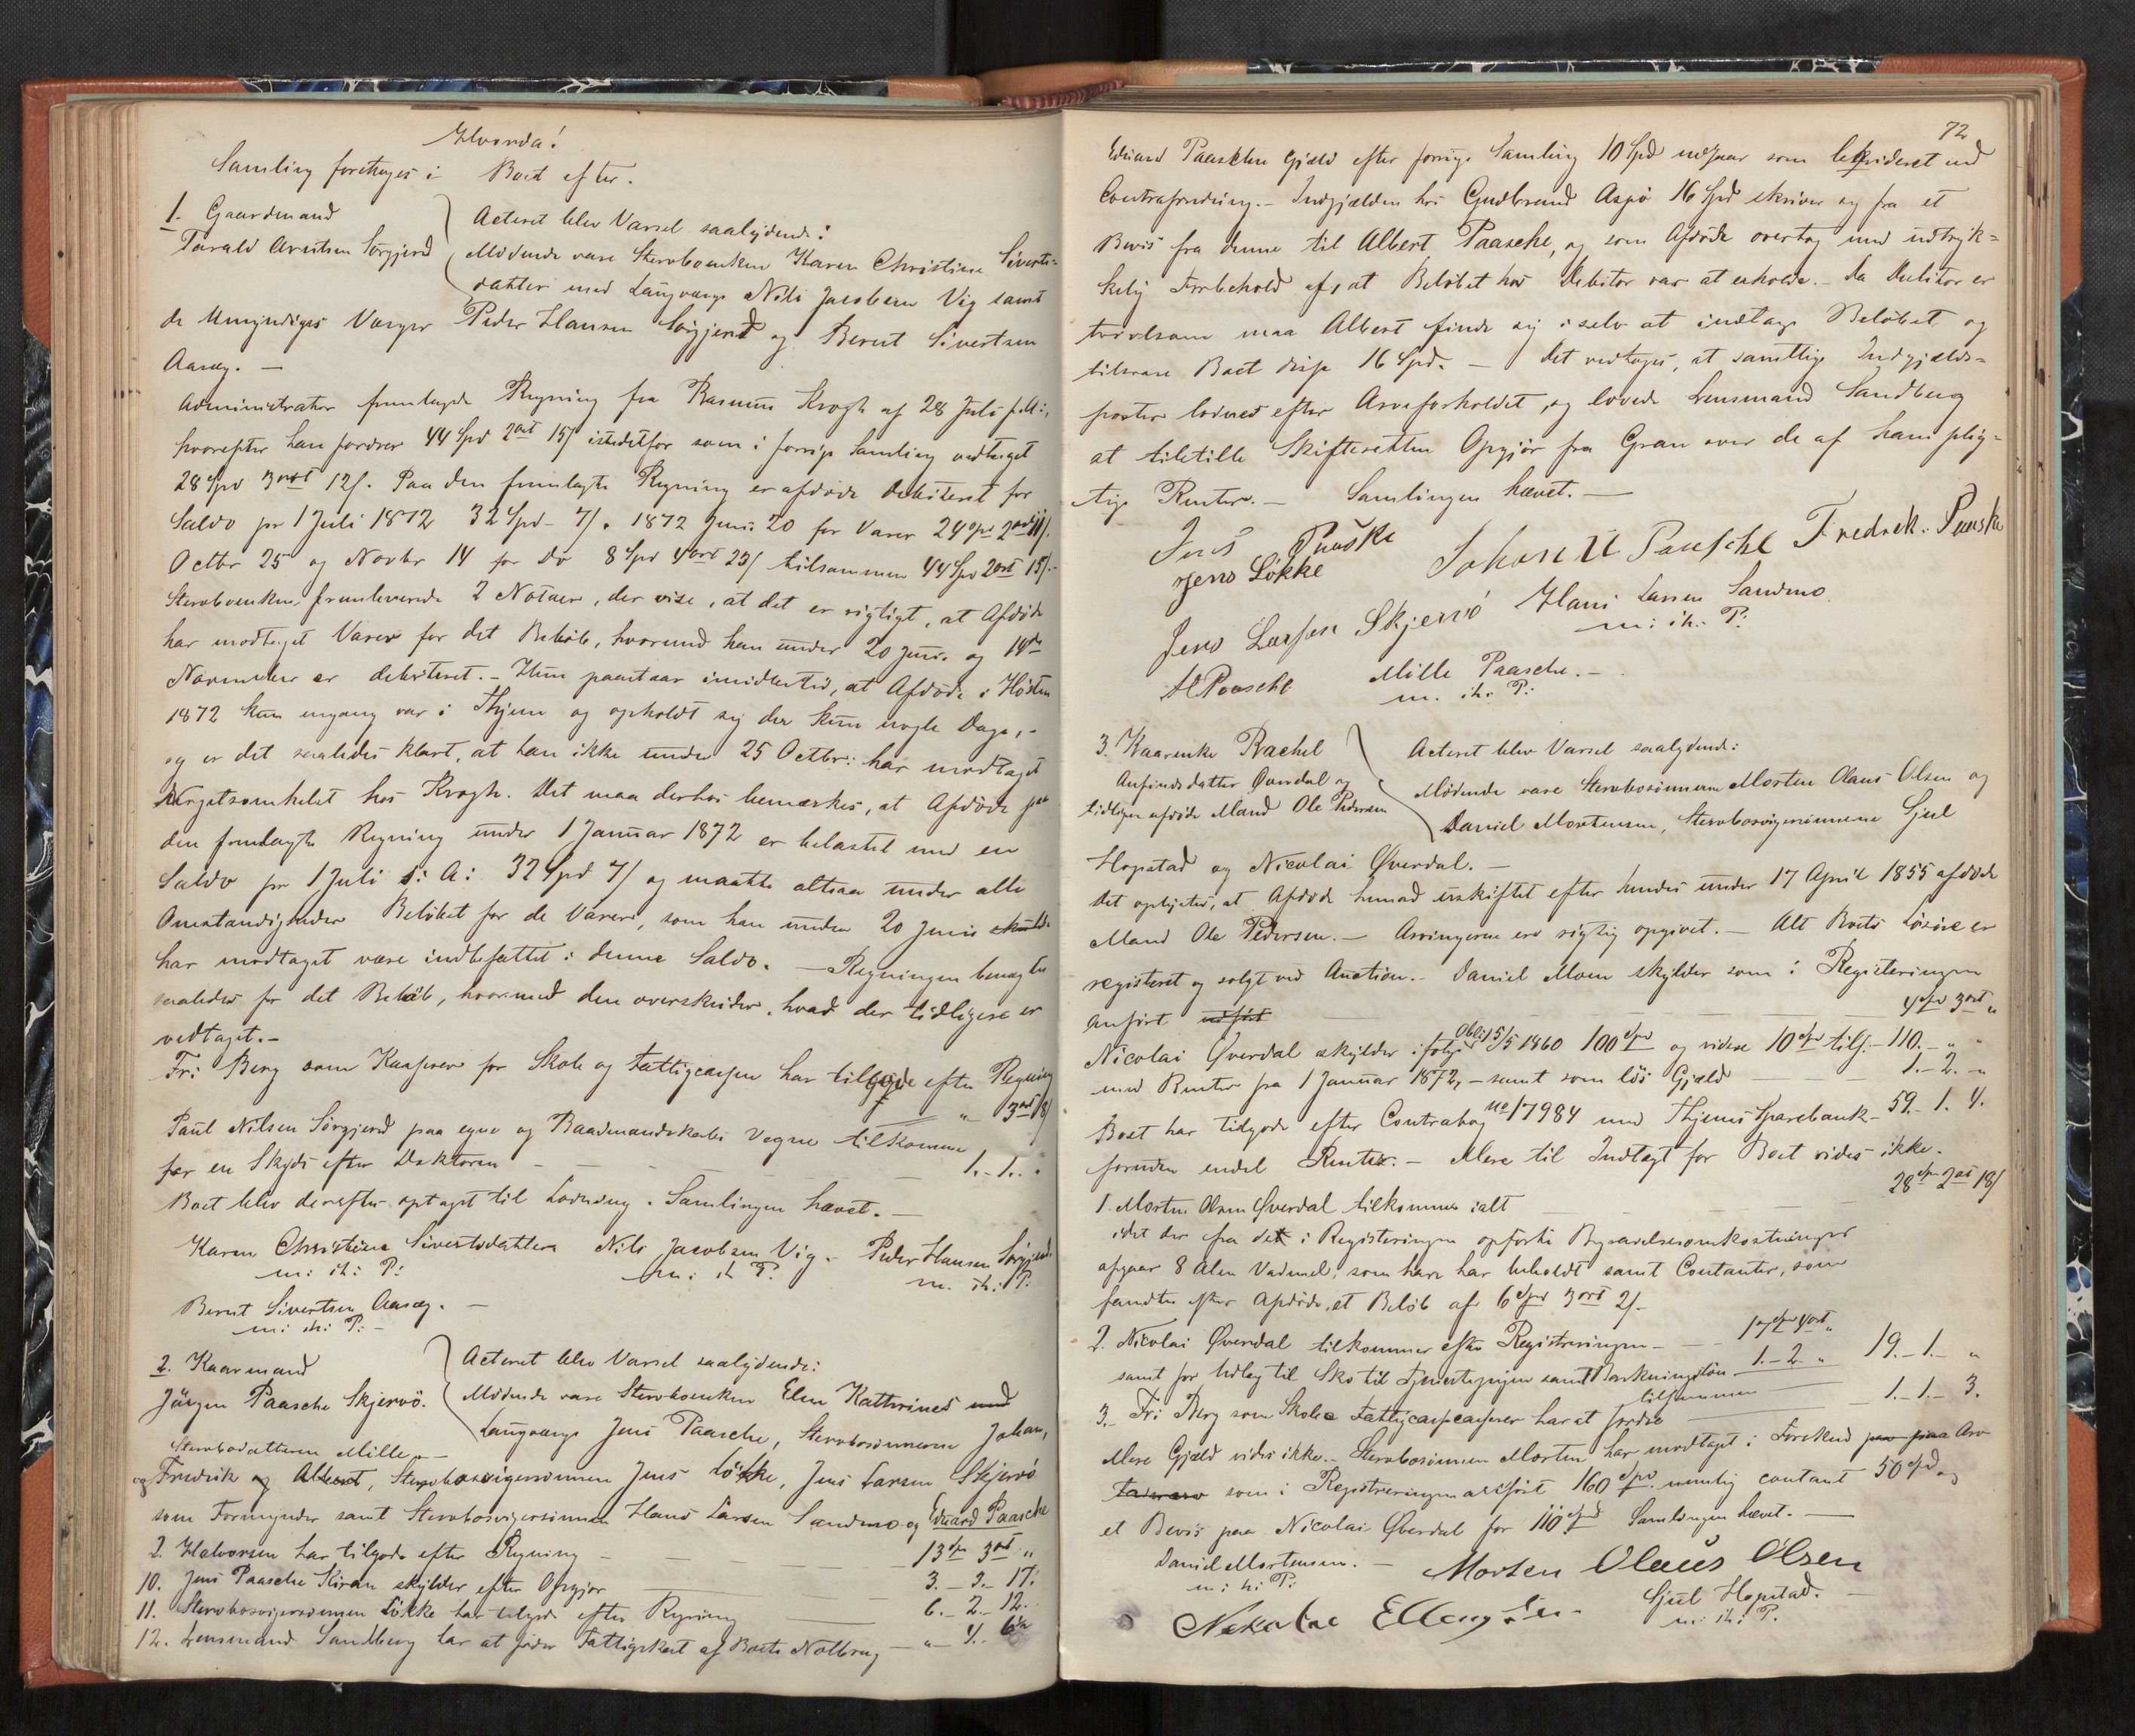 Hvorda!
Samling foretages i Boet efter.
1. Gaardmand
Tarald Arntsen Sørgjerd
Acteret blev Varsel saalydende:
Mødende vare Stervboenken Karen Christine Siverts-
datter med Laugværge Nils Jacobsen Vig samt
de Umyndiges Værger Peder Hansen Sørgjerd og Bernt Sivertsen
Aaseg. —
Administrator fremlagde Regning fra Rasmus Krogh af 28 Juli f. A:,
hvorefter han fordrer 44 Spd 2ort 15/ istedetfor som i forrige Samling vedtaget
28 Spd 3ort 12/. Paa den fremlagte Regning er afdøde debiteret for
Saldo pr 1 Juli 1872 32 Spd - 7/. 1872 Juni 20 for Varer 24 spd 2ort 11/.
Octbr 25 og Novbr 14 for Do 8 Spd 4ort 23/ tilsammen 44 Spd 2ort 15/.-
Stervboenken fremleverede 2 Notaer, der vise, at det er rigtigt, at Afdøde
har modtaget Varer for det Beløb, hvormed han under 20 Juni og 14de
November er debiteret. - Hun paastaar imidlertid, at Afdøde i Høsten
1872 kun engang var i Thjem og opholdt sig der kun nogle Dage, -
og er det saaledes klart, at han ikke under 25 Octbr: har modtaget
Nogetsomhelst hos Krogh. Det maa derhos bemærkes, at Afdøde paa
den fremlagte Regning under 1 Januar 1872 er belastet med en
Saldo pr 1 Juli s: A: 32 Spd 7/ og maatte altsaa under alle
Omstændigheder Beløbet for de Varer, som han under 20 Juni skulde
har modtaget være indbefattet i denne Saldo. — Regningen benegtes
saaledes for det Beløb, hvormed den overskrider, hvad der tidligere er
vedtaget. -
Fr: Berg som Kasserer for Skole og Fattigcassen har tilgode efter Regning
" 3ort 18/
Paul Nilsen Sørgjerd paa egne og Baadmandskabs Vegne tilkommer
for en Skyds efter Doktoren - - - - 1. - 1. .
Boet blev derefter optaget til Lodning. Samlingen hævet. —
Karen Christine Sivertsdatter Nils Jacobsen Vig. Peder Hansen Sørgjerd
m: ih: P: m: ih P: m. ih: P:
Bernt Sivertsen Aaseg. —
m: ih: P: -
2. Kaarmand
Jørgen Paasche Skjervø.
Acteret blev Varsel saalydende:
Mødende vare Stervboenken Elen Kathrines med
Laugværge Jens Paasche, Stervbosønnerne Johan,
Stervbodatteren Mille —
og Fredrik og Albert, Stervbosvigersønnen Jens Løkke, Jens Larsen Skjervø
som Formynder samt Stervbosvigersønnen Hans Larsen Sandmo og Eduard Paasche
2. Halvorsen har tilgode efter Regning - - - 13 spd 3ort "
10. Jens Paasche Kiran skylder efter Opgjør — 3. - 3. - 17.
11. Stervbosvigersønnen Løkke har tilgode efter Regning — 6. - 2. - 12.
12. Lensmand Sandberg har at fordre Fattigskat af Boets Nalbrug — " - 4. - 6

72
Eduard Paasches Gjæld efter forrige Samling 10 Spd udgaar som likvideret ved
Contrafordring. - Indgjælden hos Gudbrand Aspø 16 Spd skriver sig fra et
Bevis fra denne til Albert Paasche, og som Afdøde overtog med udtryk-
kelig Forbehold af, at Beløbet hos Debitor var at erholde. - Da Debitor er
tvivlsom maa Albert finde sig i selv at indtage Beløbet og
tilsvare Boet disse 16 Spd. — Det vedtoges, at samtlige Indgjælds-
poster lodnes efter Arveforholdet, og lovede Lensmand Sandberg
at tilstille Skifteretten Opgjør fra Gran over de af ham plig-
tige Renter. — Samlingen hævet. —
Jens Paaske
Jens Løkke Johan U Paasche Fredrek. Paaske
Jens Larsen Skjervø Hans Larsen Sandmo
m: ih: P:
A Paasche Mille Paasche. -
m. ih: P:
3. Kaarenke Rachel
Anfindsdatter Øverdal og
tidligere afdøde Mand Ole Pedersen
Acteret blev Varsel saalydende:
Mødende vare Stervbosønnerne Morten Olaus Olsen og
Daniel Mortensen, Stervbosvigersønnerne Sjul
Hopstad og Nicolai Øverdal. —
Det oplystes, at Afdøde hensad i uskiftet efter hendes under 17 April 1855 afdøde
Mand Ole Pedersen. — Arvingerne ere rigtig opgivet. — Alt Boets Løsøre er
registeret og solgt ved Auction. - Daniel Moen skylder som i Registeringen
anført udført — — — 4 spd 3ort "
Nicolai Øverdal skylder ifølge Obli: 15/5 1860 100 spd og videre 10 spd tils. - 110. - " "
med Renter fra 1 Januar 1872, - samt som løs Gjæld — — 1. - 2. - "
Boet har tilgode efter Contrabog No 17984 med Thjems Sparebank - 59. - 1. 4.
foruden endel Renter. - Mere til Indtægt for Boet vides ikke.
1. Morten Olsen Øverdal tilkommer ialt — — 28 spd 2ort 18/
idet der fra det i Registeringen opførte Begravelsesomkostninger
afgaar 8 Alen Vadmel, som han har beholdt samt Contanter, som
fandtes efter Afdøde, et Beløb af 6 Spd 3ort 2/.
2. Nicolai Øverdal tilkommer efter Registreringen - - 17 spd 4ort "
samt for Udlæg til Sko til Tjenestepigen samt Vaskningsløn 1. - 2. " 19. - 1. - "
tilsammen
3. Fr: Berg som Skole & Fattigcassecasserer har at fordre — 1. - 1. - 3.
Mere Gjæld vides ikke. - Stervbosønnen Morten har modtaget i Forskud paa Arv
som i Registreringen anført 160 Spd. nemlig contant 50 spd og
et Bevis paa Nicolai Øverdal for 110 spd Samlingen hævet. —
Daniel Mortensen. — Morten Olaus Olsen
m: h: P:
Nekolai Sjul Hopstad. —
m: ih: P.